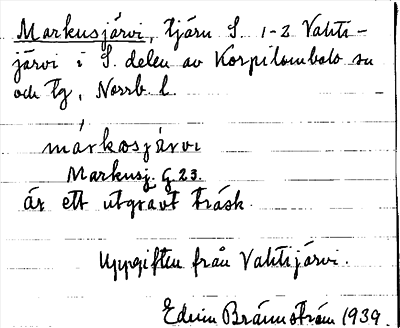 Markusjärvi, tjärn S. 1-2 Vahti-
järvi i S. delen av Korpilombolo sn
och tg, Norrb. l.
márkosjärvi
Markusj. G 23.
är ett utgrävt träsk.
Uppgiften från Vahtijärvi.
Edvin Brännström 1939.